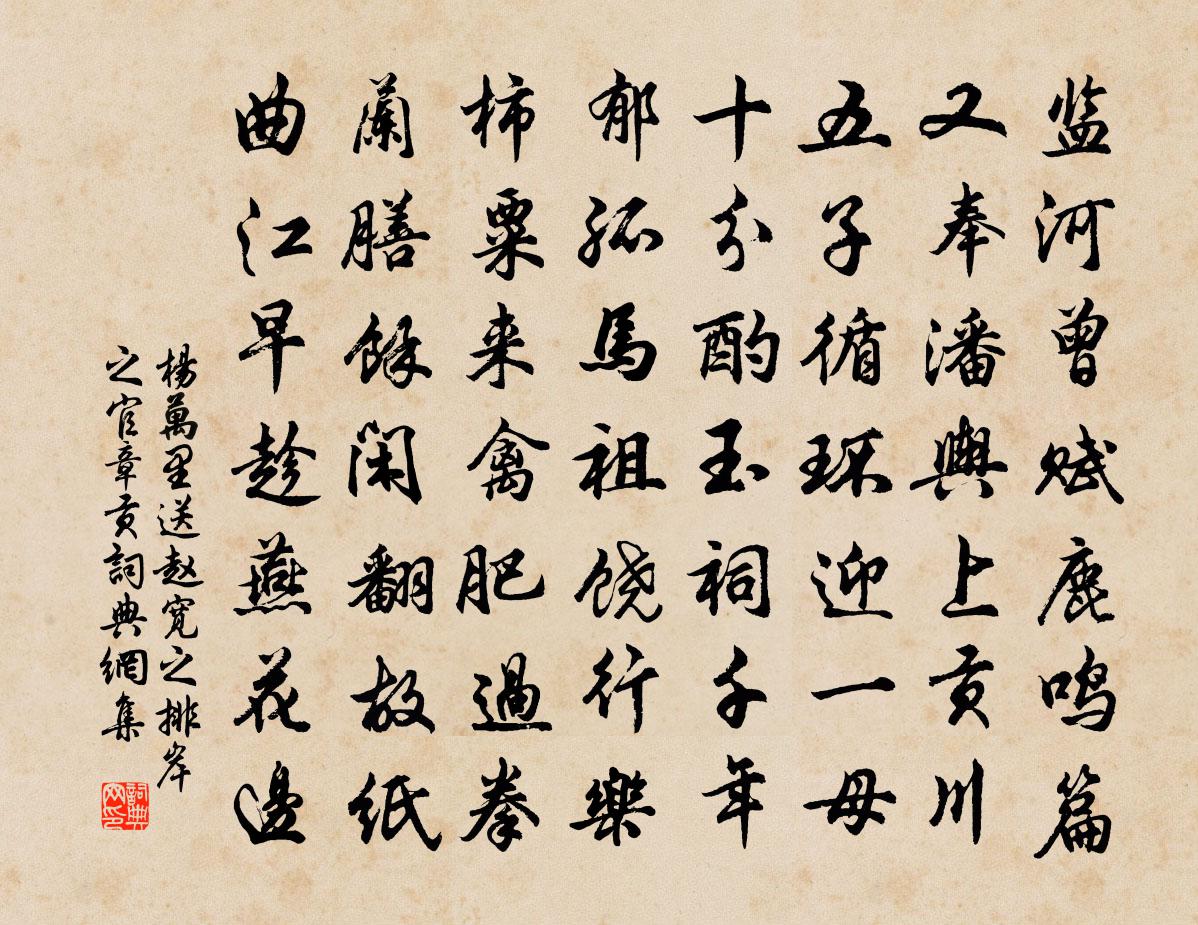 监河曾赋鹿鸣篇
又奉潘舆上贡川
五子循环迎一母
十分酌玉祠千年
郁孤馬祖饶行樂
柿粟来禽肥過拳
蘭膳餘闲翻故纸
曲江早趁燕花邊
楊萬里送赵宽之排岸
之官章贡詞典網集
詞典网印